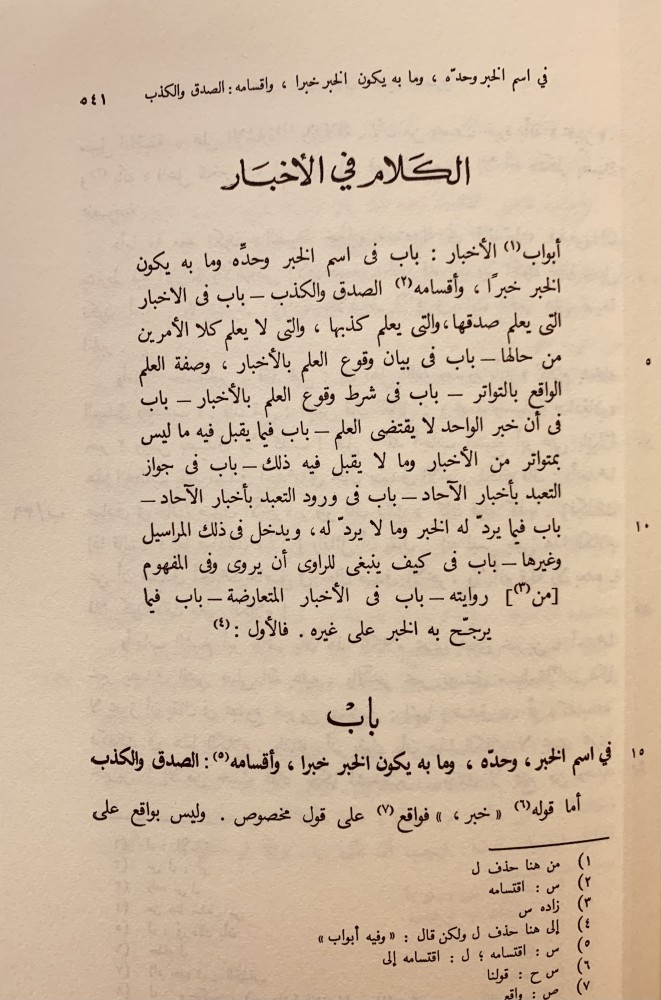 في اسم الخبر وحدّه ، وما به يكون الخبر خبرا ، واقسامه : الصدق والكذب ٥٤١
الكلام في الأخبار
أبواب(١) الأخبار : باب فى اسم الخبر وحدِّه وما به يكون
الخبر خبرًا ، وأقسامه(٢) الصدق والكذب – باب فى الاخبار
التى يعلم صدقها ، والتى يعلم كذبها ، والتى لا يعلم كلا الأمرين
من حالها – باب فى بيان وقوع العلم بالأخبار ، وصفة العلم ٥
الواقع بالتواتر – باب فى شرط وقوع العلم بالأخبار – باب
فى أن خبر الواحد لا يقتضى العلم – باب فيما يقبل فيه ما ليس
بمتواتر من الأخبار وما لا يقبل فيه ذلك – باب فى جواز
التعبد بأخبار الآحاد – باب فى ورود التعبد بأخبار الآحاد –
باب فيما يردّ له الخبر وما لا يردّ له ، ويدخل فى ذلك المراسيل ١٠
وغيرها – باب فى كيف ينبغى للراوى أن يروى وفى المفهوم
[من(٣)] روايته – باب فى الأخبار المتعارضة – باب فيما
يرجّح به الخبر على غيره . فالأول :(٤)
باب
في اسم الخبر ، وحدّه ، وما به يكون الخبر خبرا ، وأقسامه(٥) : الصدق والكذب ١٥
أما قوله(٦) « خبر ، » فواقع(٧) على قول مخصوص . وليس بواقع على
١) من هنا حذف ل
٢) س : اقتسامه
٣) زاده س
٤) إلى هنا حذف ل ولكن قال : « وفيه أبواب »
٥) س : اقتسامه ؛ ل : اقتسامه إلى
٦) س ح : قولنا
٧) ص : واقع